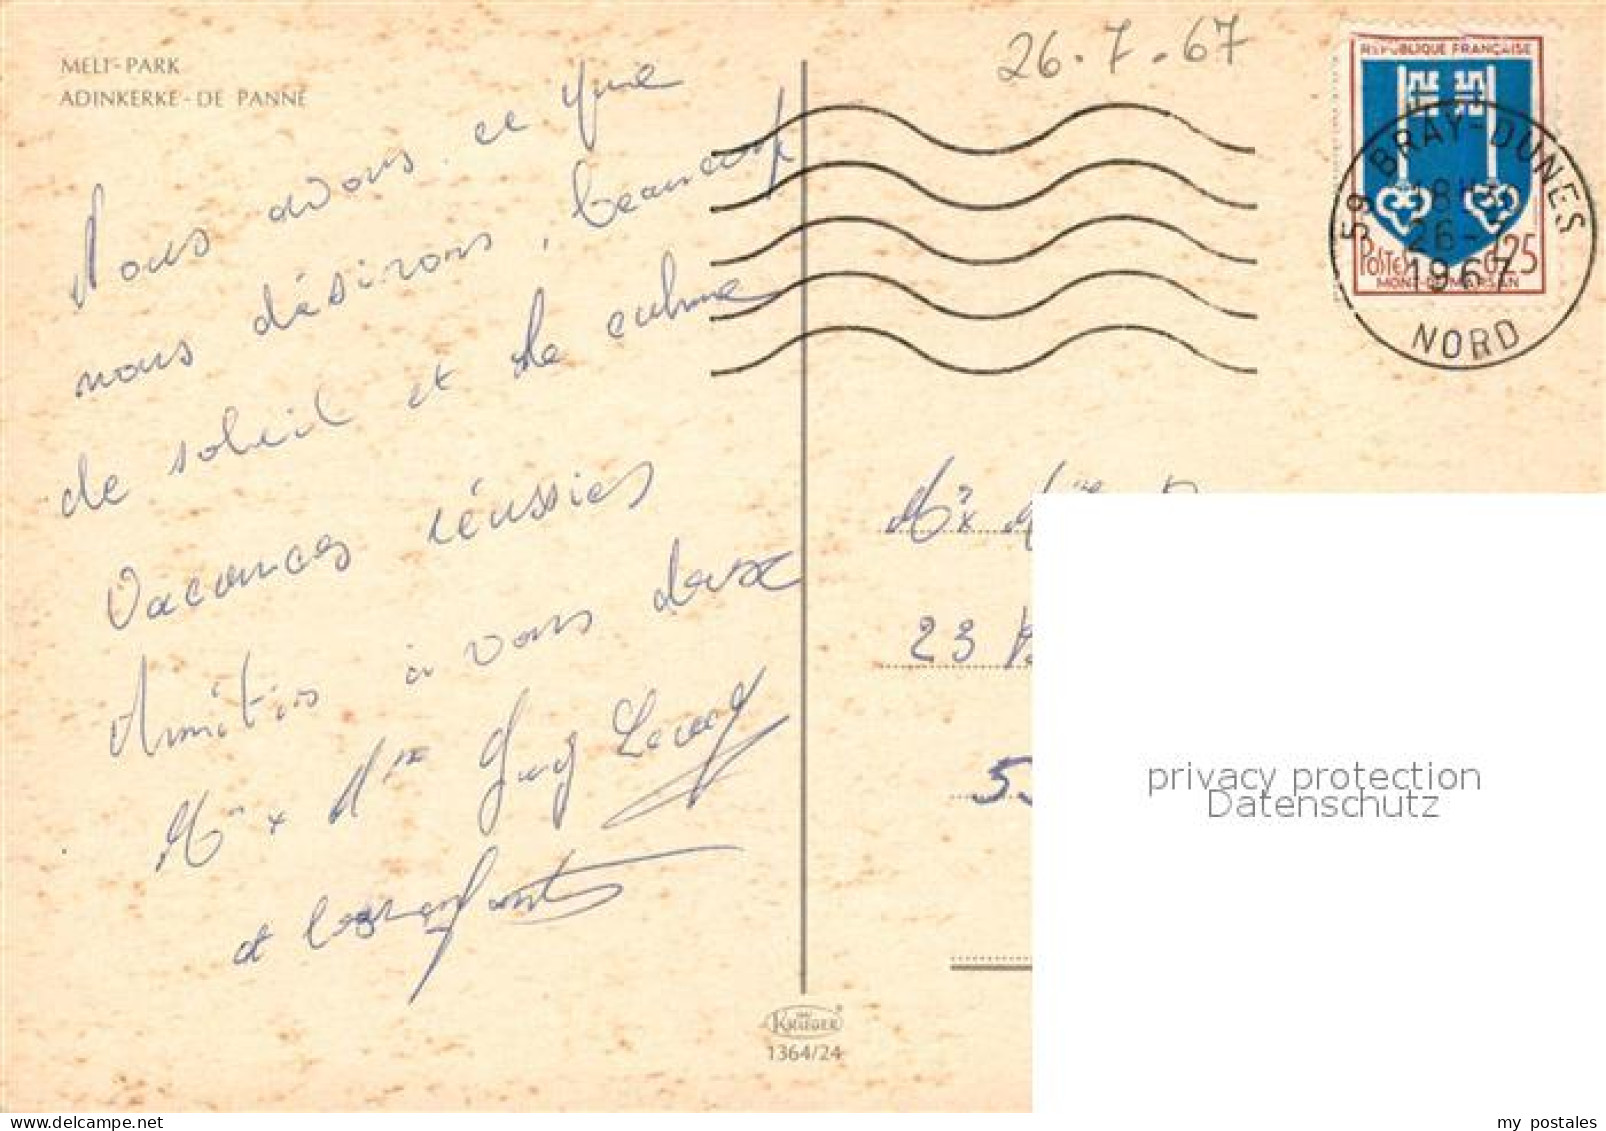 MELI-PARK
ADINKERKE-DE PANNE
26.7.67
REPUBLIQUE FRANÇAISE
59 BRAY-DUNES
18H
26-7
1967
NORD
POSTES 0,25
MONT-DE-MARSAN
Nous avons ce que
nous désirons, beaucoup
de soleil et de calme
Vacances réussies
Amitiés à vous deux
Mr & Mme Guy
et les enfants
23
KRÜGER
1364/24
privacy protection
Datenschutz
my postales